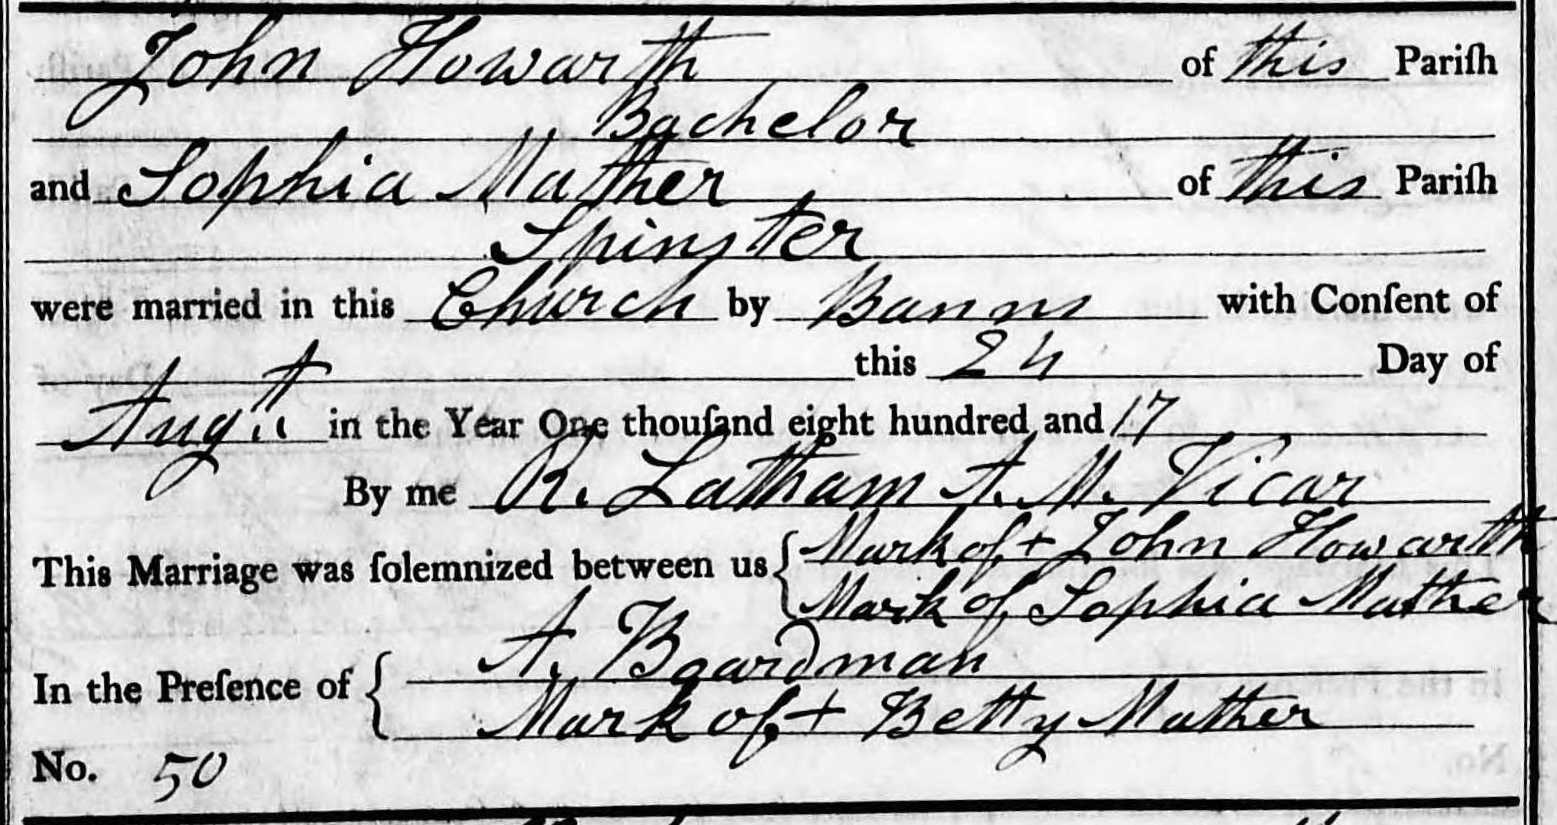 John Howarth of this Pariſh
Bachelor
and Sophia Mather of this Pariſh
Spinster
were married in this Church by Banns with Conſent of
this 24 Day of
Augst in the Year One thouſand eight hundred and 17
By me R. Latham A. M. Vicar
This Marriage was ſolemnized between us { Mark of + John Howarth
Mark of Sophia Mather
In the Preſence of { A. Boardman
Mark of + Betty Mather
No. 50